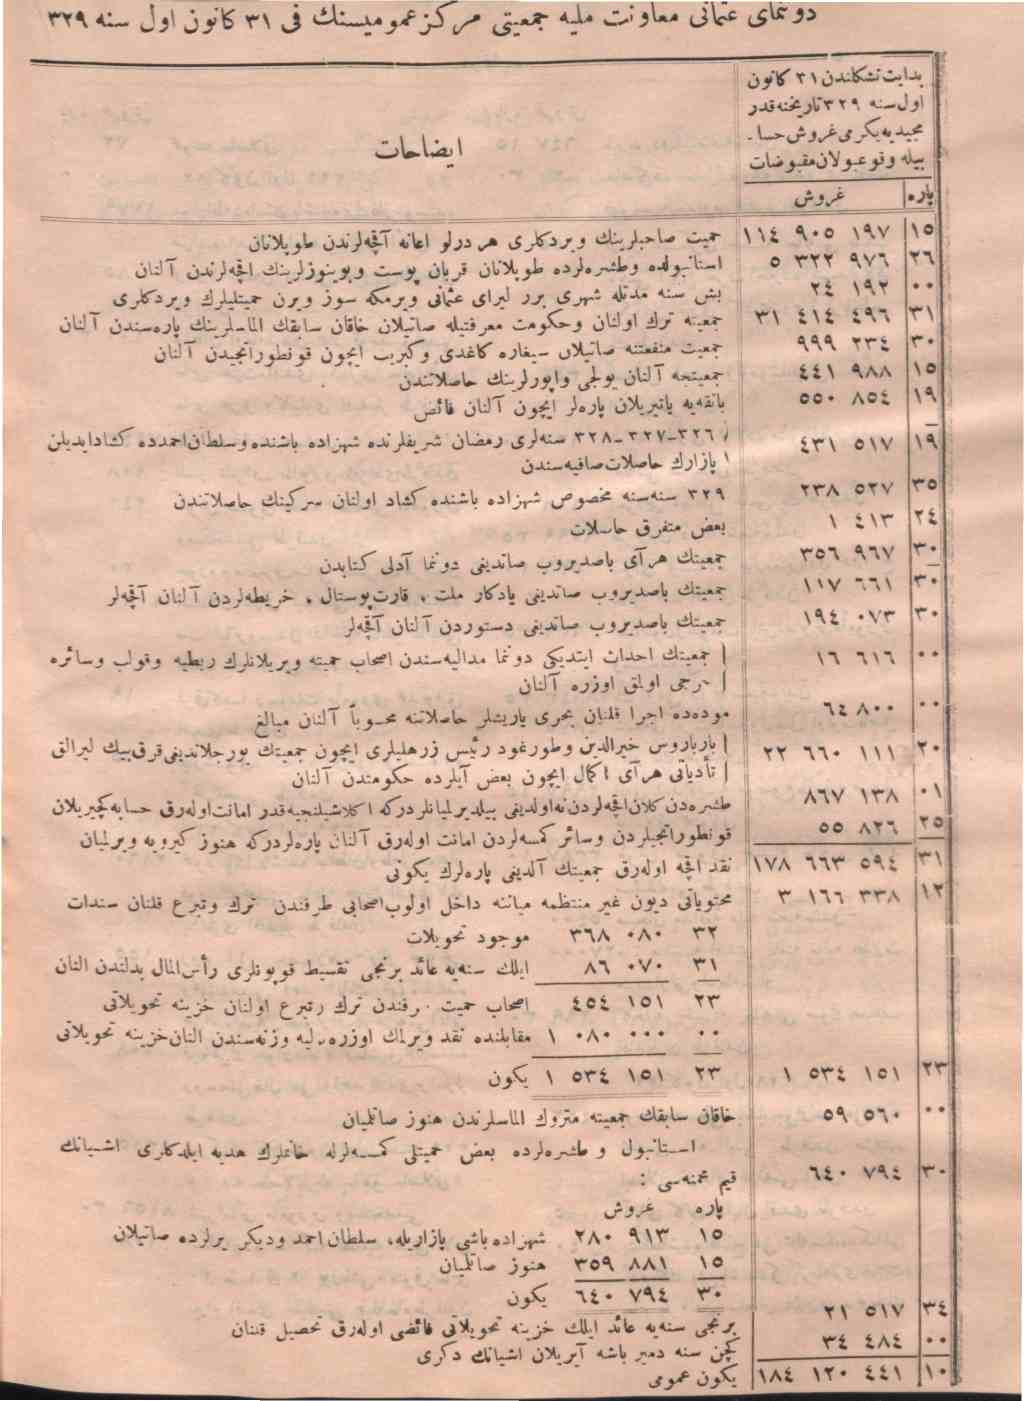 دونمای عثمانی معاونت ملیه جمعیتی مركز عمومیسنك فی ٣١ كانون اول سنه ٣٢٩
بدایت تشكلندن ٣١ كانون
اول سنه ٣٢٩ تاریخنه قدر
مجیدیه یكرمی غروش حسا-
بیله وقوعبولان مقبوضات
ایضاحات
پاره غروش
١٥ ١١٤ ٩٠٥ ١٩٧ حمیت صاحبلرینك ویردكلری هر درلو اعانه آقچه لرندن طوپلانان
٢٦ ٥ ٣٢٢ ٩٧٦ استانبولده وطشره لرده طوپلانان قربان پوست وبوینوزلرینك اقچه لرندن آلنان
٠٠ ٢٤ ١٩٢ بش سنه مدتله شهری برر لیرای عثمانی ویرمكه سوز ویرن حمیتلیلرك ویردكلری
٣١ ٣١ ٤١٤ ٤٩٦ جمعیته ترك اولنان وحكومت معرفتیله صاتیلان خاقان سابقك الماسلرینك پاره سندن آلنان
٣٠ ٩٩٩ ٢٣٤ جمعیت منفعتنه صاتیلان سیغاره كاغدی وكبریت ایچون قونطوراتجیدن آلنان
١٥ ٤٤١ ٩٨٨ جمعیتجه آلنان یولجی واپورلرینك حاصلاتندن
١٩ ٥٥٠ ٨٥٤ بانقه یه یاتیریلان پاره لر ایچون آلنان فائض
١٩ ٤٣١ ٥١٧ ٣٢٦-٣٢٧-٣٢٨ سنه لری رمضان شریفلرنده شهزاده باشنده وسلطان احمدده كشاد ایدیلن
پازارك حاصلات صافیه سندن
٣٥ ٢٣٨ ٥٢٧ ٣٢٩ سنه سنه مخصوص شهزاده باشنده كشاد اولنان سركینك حاصلاتندن
٢٤ ١ ٤١٣ بعض متفرق حاسلات
٣٠ ٣٥٦ ٩٦٧ جمعیتك هر آی باصدیروب صاتدیغی دوننما آدلی كتابدن
٣٠ ١١٧ ٦٦١ جمعیتك باصدیروب صاتدیغی یادكار ملت ، قارت پوستال ، خریطه لردن آلنان آقچه لر
٣٠ ١٩٤ ٠٧٣ جمعیتك باصدیروب صاتدیغی دستوردن آلنان آقچه لر
٠٠ ١٦ ٦١٦ جمعیتك احداث ایتدیكی دوننما مدالیه سندن اصحاب حمیته ویریلانلرك ربطیه وقولپ وسائره
خرجی اولمق اوزره آلنان
٠٠ ٦٤ ٨٠٠ موده ده اجرا قلنان بحری یاریشلر حاصلاتنه محسوباً آلنان مبالغ
٢٠ ٢٢ ٦٦٠ ١١١ بارباروس خیرالدین وطورغود رئیس زرهلیلری ایچون جمعیتك بورجلاندیغی قرق بیك لیرالق
تأدیاتی هر آی اكمال ایچون بعض آیلرده حكومتدن آلنان
٠١ ٨٦٧ ١٣٨ طشره دن كلان اقچه لردن نه اولدیغی بیلدیرلمیانلردركه اكلاشیلنجیه قدر امانت اوله رق حسابه كچیریلان
٢٥ ٥٥ ٨٢٦ قونطوراتجیلردن وسائر كمسه لردن امانت اوله رق آلنان پاره لردركه هنوز كیرویه ویرلمیان
٣١ ١٧٨ ٦٦٣ ٥٩٤ نقد اقچه اوله رق جمعیتك آلدیغی پاره لرك یكونی
١٢ ٣ ١٦٦ ٣٣٨ محتویاتی دیون غیر منتظمه میاننه داخل اولوب اصحابی طرفندن ترك وتبرع قلنان سندات
٣٢ ٣٦٨ ٠٨٠ موجود تحویلات
٣١ ٨٦ ٠٧٠ ایلك سنه یه عائد برنجی تقسیط قوپونلری رأس المال بدلندن النان
٢٣ ٤٥٤ ١٥١ اصحاب حمیت طرفندن ترك وتبرع اولنان خزینه تحویلاتی
٠٠ ١ ٠٨٠ ٠٠٠ مقابلنده نقد ویرلمك اوزره مالیه وزنه سندن النان خزینه تحویلاتی
٢٣ ١ ٥٣٤ ١٥١ ٢٣ ١ ٥٣٤ ١٥١ یكون
٠٠ ٥٩ ٥٦٠ خاقان سابقك جمعیته متروك الماسلرندن هنوز صاتلمیان
٣٠ ٦٤٠ ٧٩٤ استانبول و طشره لرده بعض حمیتلی كمسه لرله خانملرك هدیه ایلدكلری اشیانك
قیم مخمنه سی :
پاره غروش
١٥ ٢٨٠ ٩١٣ شهزاده باشی پازاریله، سلطان احمد ودیكر یرلرده صاتیلان
١٥ ٣٥٩ ٨٨١ هنوز صاتلمیان
٣٠ ٦٤٠ ٧٩٤ یكون
٣٤ ٢١ ٥١٧ برنجی سنه یه عائد ایلك خزینه تحویلاتی فائضی اوله رق تحصیل قلنان
٠٠ ٣٤ ٤٨٤ كچن سنه دمیر باشه آیریلان اشیانك دكری
١٠ ١٨٤ ١٢٠ ٤٤١ یكون عمومی